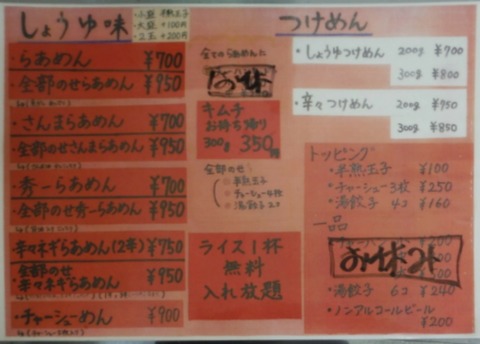 しょうゆ味
・らあめん ¥700
・全部のせらあめん ¥950
・さんまらあめん ¥700
・全部のせさんまらあめん ¥950
・秀一らあめん ¥700
・全部のせ秀一らあめん ¥950
・辛々ネギらあめん(2辛) ¥750
全部のせ
・辛々ネギらあめん ¥950
・チャーシューめん ¥900
・大盛 +100円
・2玉 +200円
全てのらあめんに
キムチ
お持ち帰り
300g 350円
全部のせ
半熟玉子
チャーシュー4枚
湯餃子2コ
ライス1杯
無料
入れ放題
つけめん
・しょうゆつけめん 200g ¥700
300g ¥800
・辛々つけめん 200g ¥750
300g ¥850
トッピング
・半熟玉子 ¥100
・チャーシュー3枚 ¥250
・湯餃子 4コ ¥160
一品
・湯餃子 6コ ¥240
・ノンアルコールビール
¥200